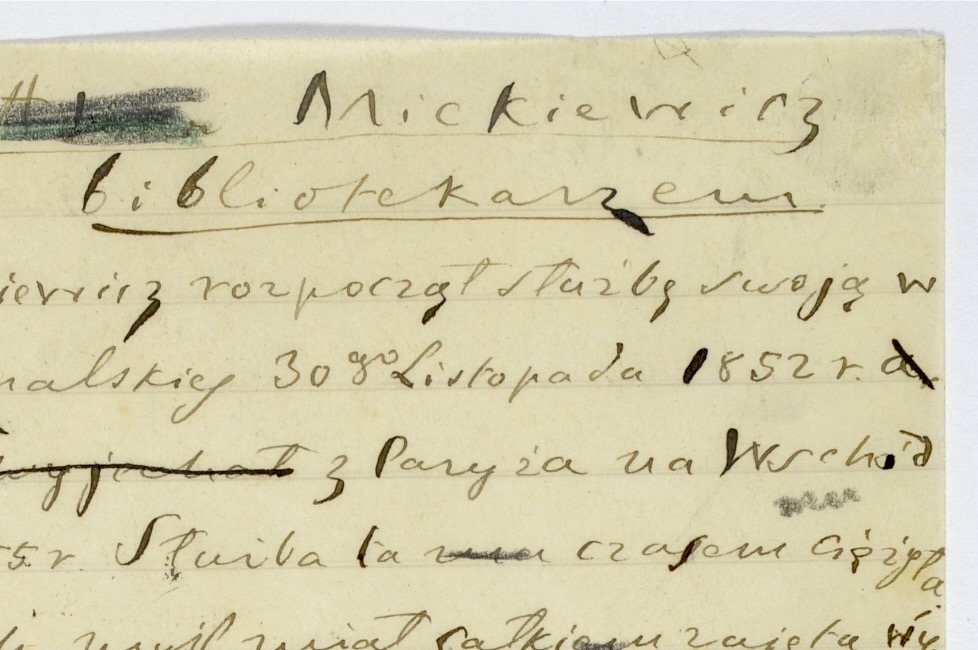 Mickiewicz
bibliotekarzem
iewicz rozpoczął służbę swoją w
nalskiej 30go Listopada 1852 r. a
z Paryża na Wschód
55 r. Służba ta czasem ciężyła
myśl miał całkiem zajętą wy